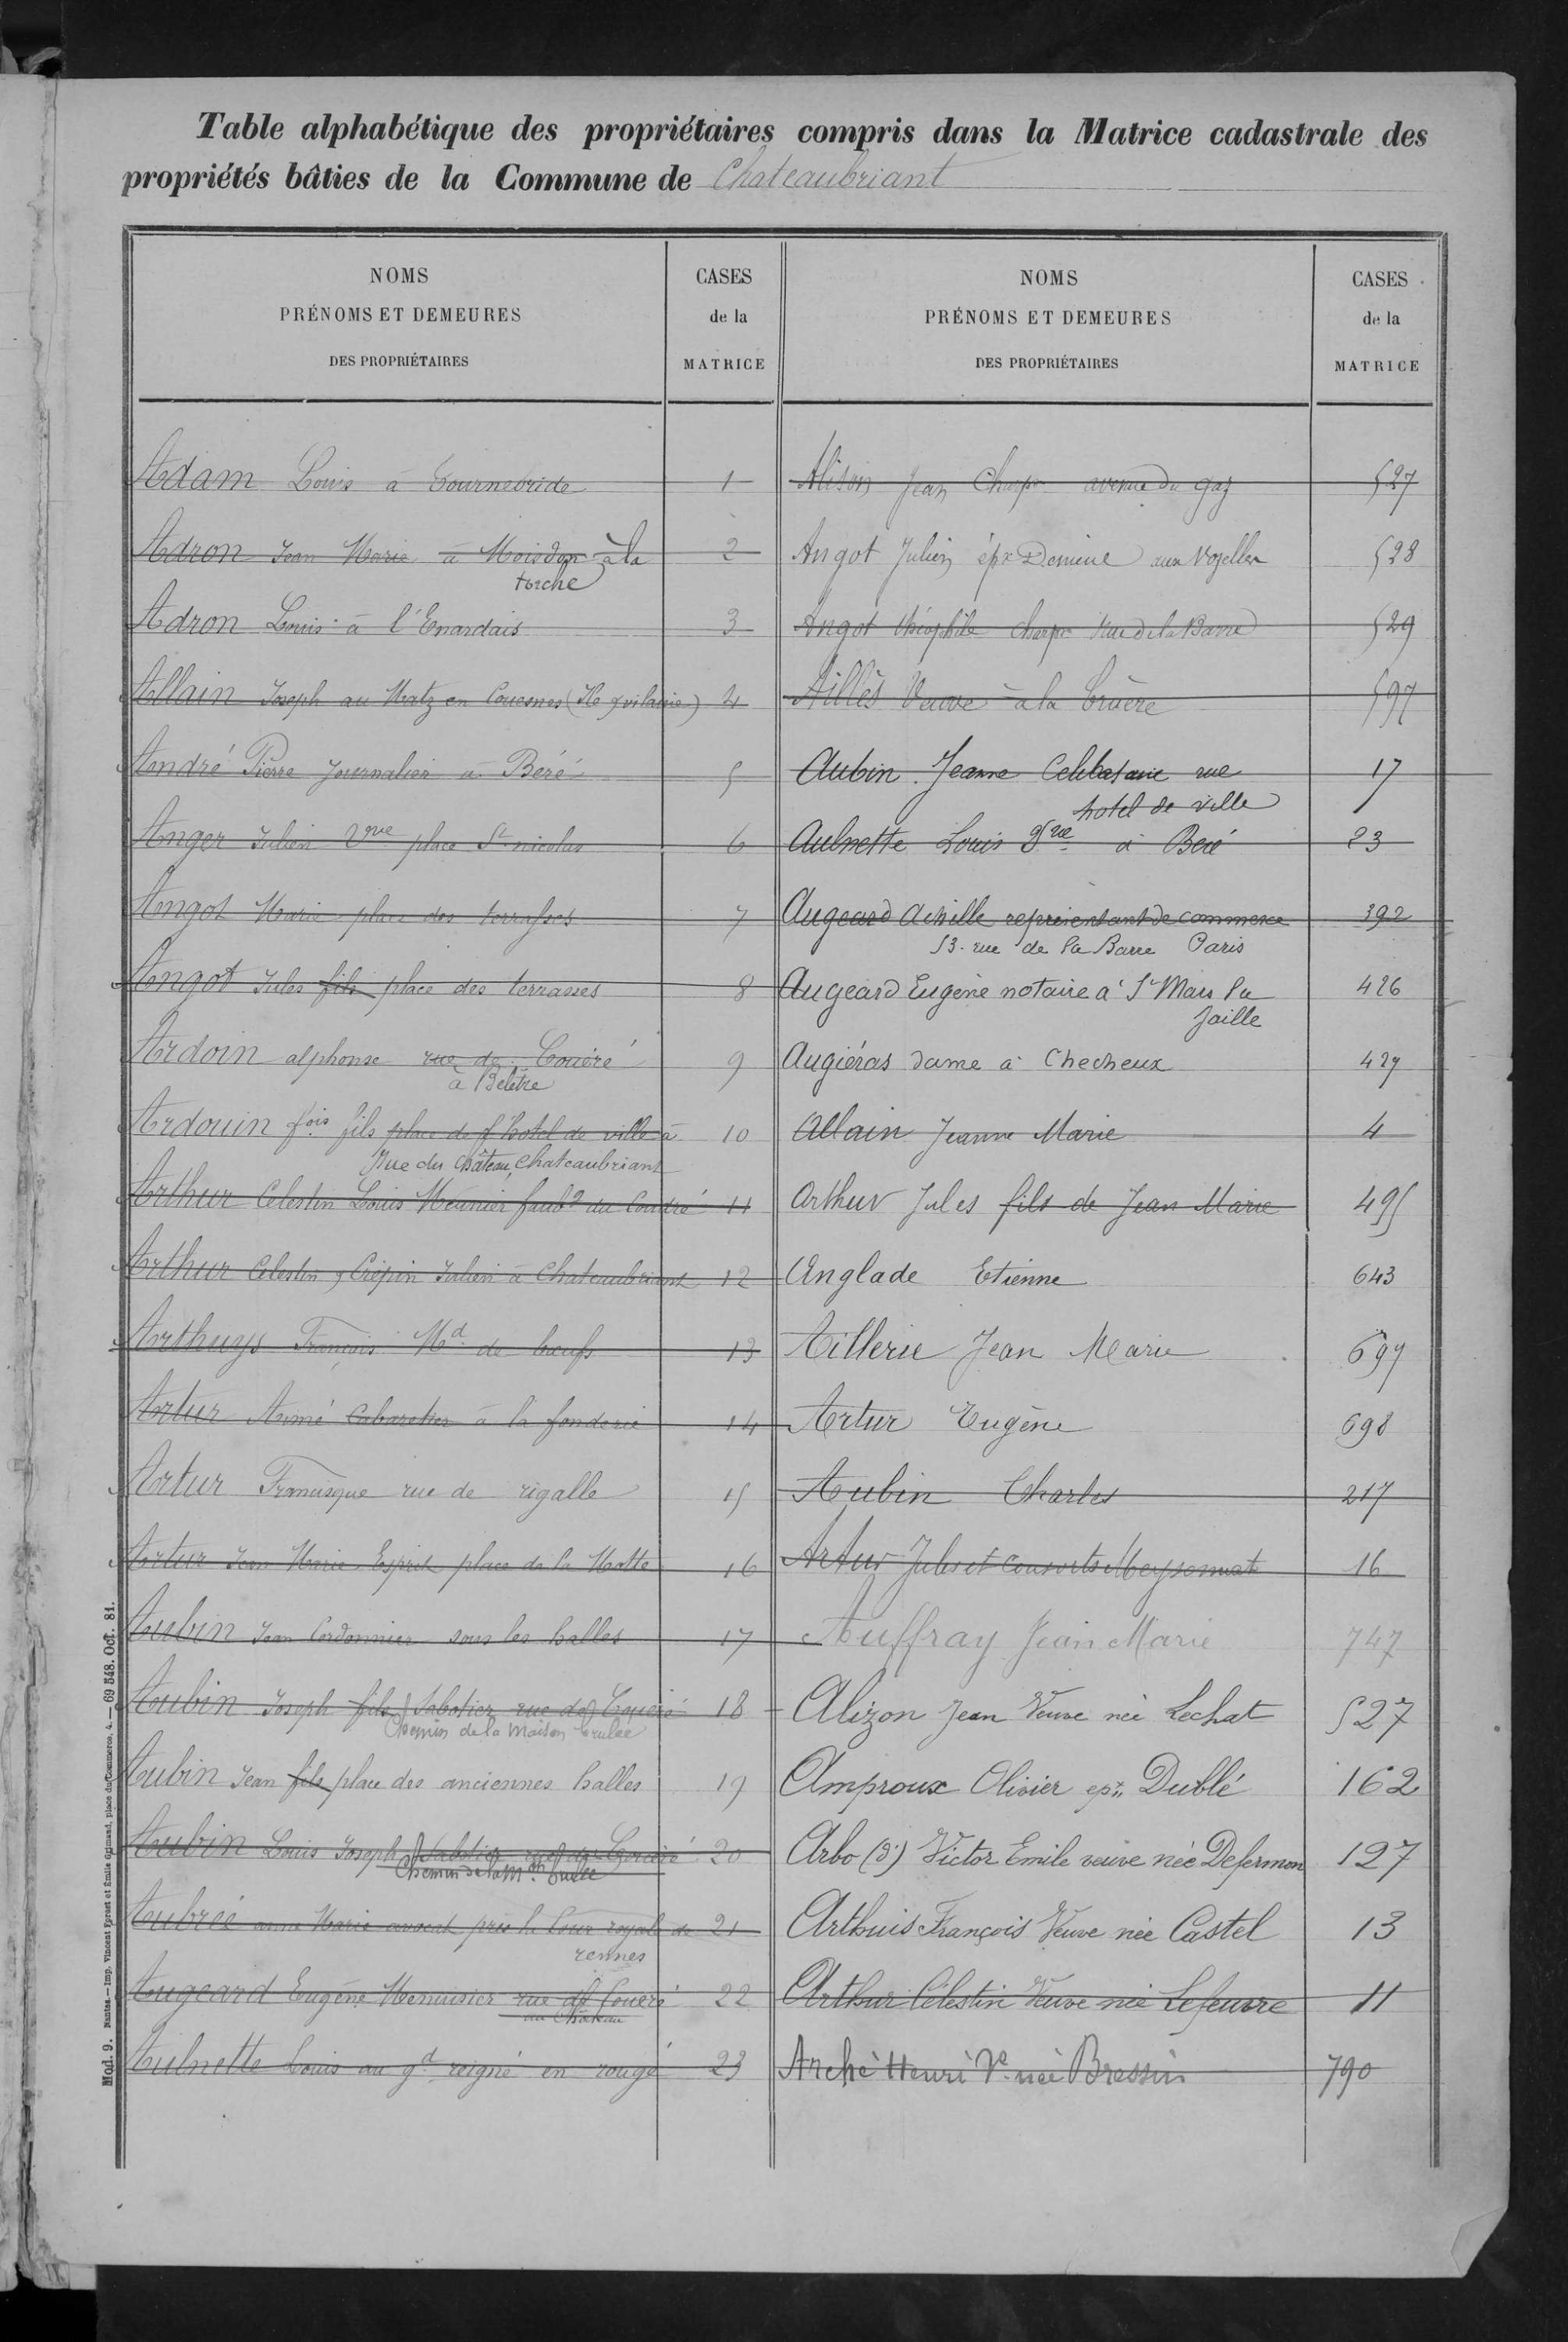 Table alphabétique des propriétaires compris dans la Matrice cadastrale des
propriétés bâties de la Commune de Chateaubriant
NOMS
PRÉNOMS ET DEMEURES
DES PROPRIÉTAIRES
CASES
de la
MATRICE
NOMS
PRÉNOMS ET DEMEURES
DES PROPRIÉTAIRES
CASES
de la
MATRICE
Adam Louis à Tournebride 1
Adron Jean Marie à Moisdon à la 2
torche
Adron Louis à l'Enardais 3
Allain Joseph au Matz en Couesmes (Ile &vilaine) 4
André Pierre Journalier à Beré 5
Anger Julien Vve place St nicolas 6
Angot Marie place des terrasses 7
Angot Jules fils place des terrasses 8
Ardoin alphonse rue de Coueré 9
à Belêtre
Ardouin fois fils place de l'hotel de ville à 10
Rue du Château, Chateaubriant
Arthur Celestin Louis Meunier faubg du Coudré 11
Arthur Celestin & Crépin Julien à Chateaubriant 12
Arthuys François Md de bœufs 13
Artur Aimé Cabaretier à la fonderie 14
Artur Francisque rue de rigalle 15
Artur Jean Marie Esprit place de la Motte 16
Aubin Jean Cordonnier sous les halles 17
Aubin Joseph fils Sabotier rue de Coueré 18
Chemin de la Maison brulée
Aubin Jean fils place des anciennes halles 19
Aubin Louis Joseph Sabotier rue de Coueré 20
Chemin de la Mon brulée
Aubrée anne Marie avocat près la Cour royale de 21
rennes
Augeard Eugène Menuisier rue de Coueré 22
du Château
Aulnette Louis au gd reigné en rougé 23
Alison Jean Charpr avenue du gaz 527
Angot Julien épx Demeué aux Vozelles 528
Angot théophile charpr Rue de la Barre 529
Aillès Veuve à la bruère 597
Aubin Jeanne Celibataire rue 17
hotel de ville
Aulnette Louis Vve à Beré 23
Augeard Achille représentant de commerce 392
53 rue de la Barre Paris
Augeard Eugène notaire à St Mars la 426
Jaille
Augiéras dame à Checheux 427
Allain Jeanne Marie 4
Arthur Jules fils de Jean Marie 495
Anglade Etienne 643
Aillerie Jean Marie 697
Artur Eugène 698
Aubin Charles 217
Artur Jules et consorts Meyssonnat 16
Auffray Jean Marie 747
Alizon Jean Veuve née Lechat 527
Amproux Olivier epx Dublé 162
Arbo (d') Victor Emile veuve née Defermon 127
Arthuis François Veuve née Castel 13
Arthur Célestin Veuve née Lefeuvre 11
Arché Henri Ve née Bressin 790
Mod. 9. Nantes.—Imp. Vincent Forest et Émile Grimaud, place du Commerce, 4.—69 548. Oct. 81.